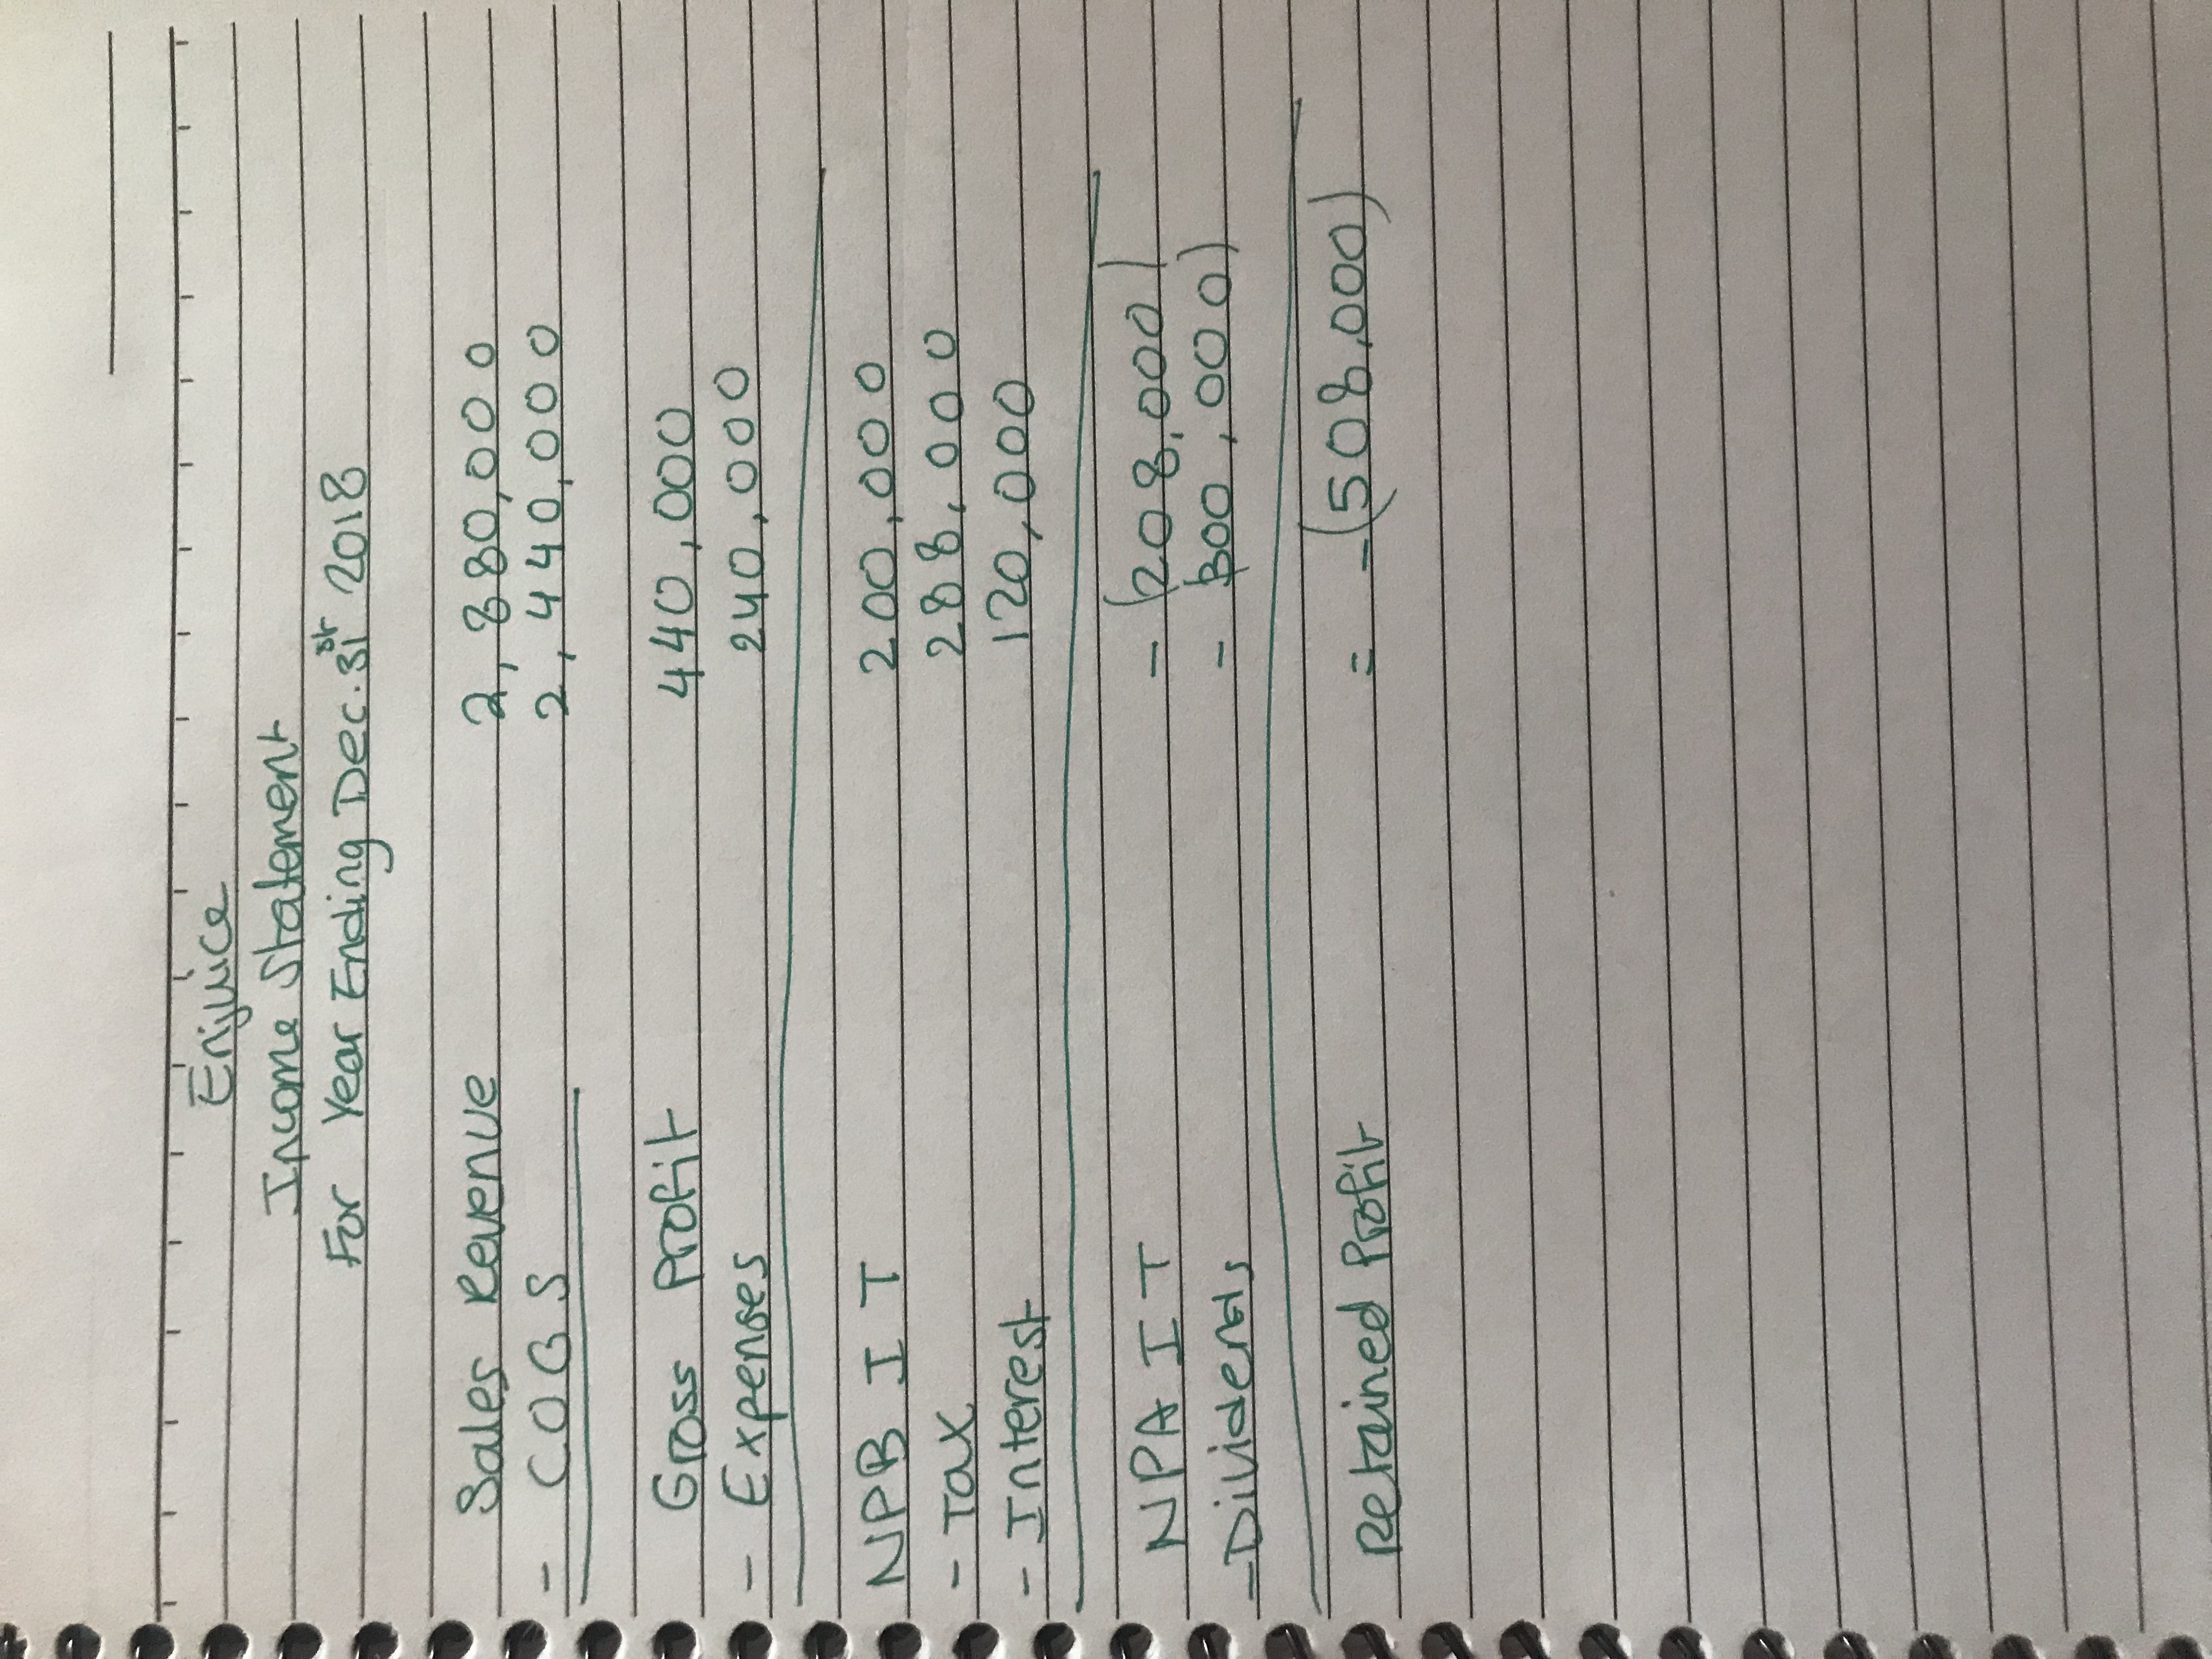 Enjuice
Income Statement
For Year Ending Dec. 31st 2018
Sales Revenue 2,880,000
- COGS 2,440,000
Gross Profit 440,000
- Expenses 240,000
NPBIT 200,000
- Tax 288,000
- Interest 120,000
NPAIT - (208,000)
- Dividends - (300,000)
Retained Profit = -(508,000)